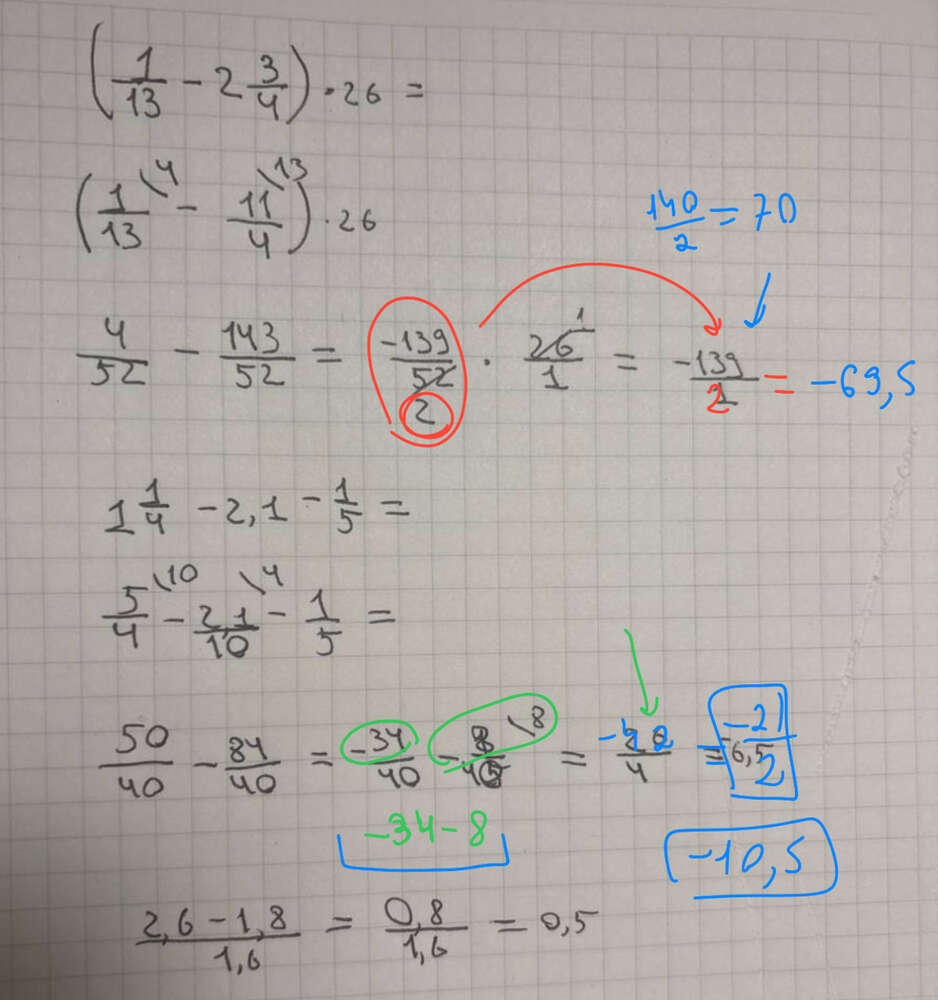 (1/13 - 2 3/4) · 26 =
(1/13 \4 - 11/4 \13) · 26
140/2 = 70
4/52 - 143/52 = -139/52 2 · 26/1 1 = -139/2 = -69,5
1 1/4 - 2,1 - 1/5 =
5/4 \10 - 21/10 \4 - 1/5 =
50/40 - 84/40 = -34/40 - 8/40 \8 = -42/4 = -21/2
-34-8
-10,5
2,6 - 1,8/1,6 = 0,8/1,6 = 0,5